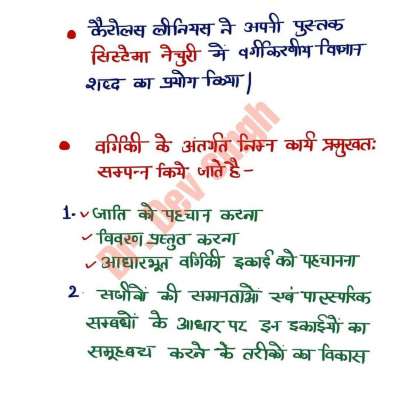 • कैरोलस लीनियस ने अपनी पुस्तक
सिस्टेमा नेचुरी में वर्गीकरणीय विज्ञान
शब्द का प्रयोग किया|
• वर्गिकी के अंतर्गत निम्न कार्य प्रमुखतः
सम्पन्न किये जाते है-
1- ✓ जाति को पहचान करना
✓ विवरण प्रस्तुत करना
✓ आधारभूत वर्गिकी इकाई को पहचानना
2 सजीवों की समानताओं एवं पारस्परिक
सम्बधों के आधार पर इन इकाईयों का
समूहबद्ध करने के तरीकों का विकास
Dr. Dev Singh